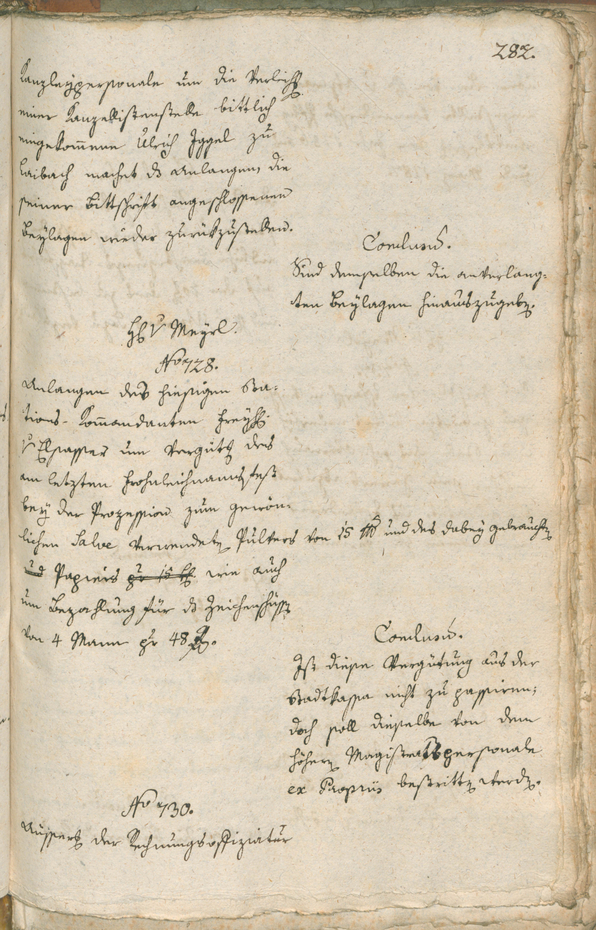 282.
Kanzleypersonale um die Verleihg
einer Kanzellistenstelle bittlich
eingekommene Ulrich Iggel zu
Laibach machet ds Anlangen, die
seiner Bittschrift angeschlossenen
Beylagen wieder zurükzustellen.
Conclusum.
Sind demselben die anverlang-
ten Beylagen hinauszugeben.
H. v Meyrl.
No 728.
Anlangen des hiesigen Sta-
tions-Kommandanten Freyh.
v Elsasser um Vergütg des
am letzten Frohnleichnamsfest
bey der Prozession zum gewön-
lichen Salve verwendeten Pulvers von 15 lb und des dabey gebrauchten
und Papiers pr 15 wie auch
um Bezahlung für ds Zeichenschüssen
von 4 Mann pr 48 x.
Conclusum.
Ist diese Vergütung aus der
Stadtkassa nicht zu passiren;
doch soll dieselbe von dem
höhern Magistratspersonale
ex Propriis bestritten werden.
No 730.
Ausserg der Rechnungsoffiziatur